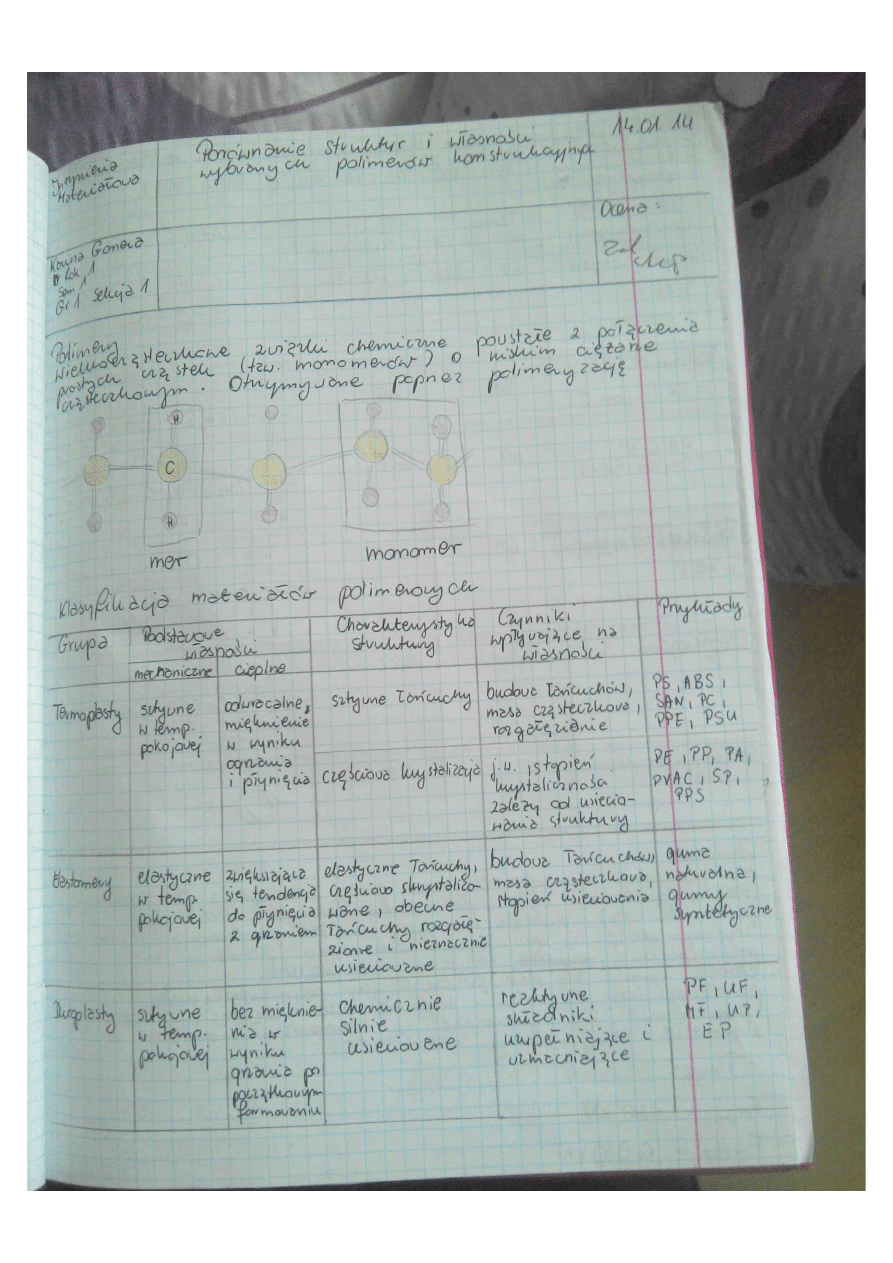 Inżynieria
Materiałowa
Porównanie struktur i własności
wybranych polimerów konstrukcyjnych
14.01.14
Ocena:
Gonera
Gr 1 Sekcja 1
Polimery
wielkocząsteczkowe związki chemiczne powstałe z połączenia
prostych cząstek (tzw. monomerów) o niskim ciężarze
cząsteczkowym. Otrzymywane poprzez polimeryzację
H
C
H
mer
monomer
Klasyfikacja materiałów polimerowych
Grupa
Podstawowe
własności
mechaniczne
cieplne
Charakterystyka
struktury
Czynniki
wpływające na
własności
Przykłady
Termoplasty
sztywne
w temp.
pokojowej
odwracalne,
mięknienie
w wyniku
ogrzania
i płynięcia
sztywne łańcuchy
budowa łańcuchów,
masa cząsteczkowa,
rozgałęzienie
PS, ABS,
SAN, PC,
PPE, PSU
częściowa krystalizacja
j.w., stopień
krystaliczności
zależy od usiecio-
wania struktury
PE, PP, PA,
PVAC, SP,
PPS
Elastomery
elastyczne
w temp.
pokojowej
zwiększająca
się tendencja
do płynięcia
z grzaniem
elastyczne łańcuchy,
częściowo skrystalizo-
wane, obecne
łańcuchy rozgałę-
zione i nieznacznie
usieciowane
budowa łańcuchów,
masa cząsteczkowa,
stopień usieciowania
guma
naturalna,
gumy
syntetyczne
Duroplasty
sztywne
w temp.
pokojowej
bez mięknie-
nia w
wyniku
grzania po
początkowym
formowaniu
chemicznie
silnie
usieciowane
reaktywne
składniki
uzupełniające i
wzmacniające
PF, UF,
MF, UP,
EP